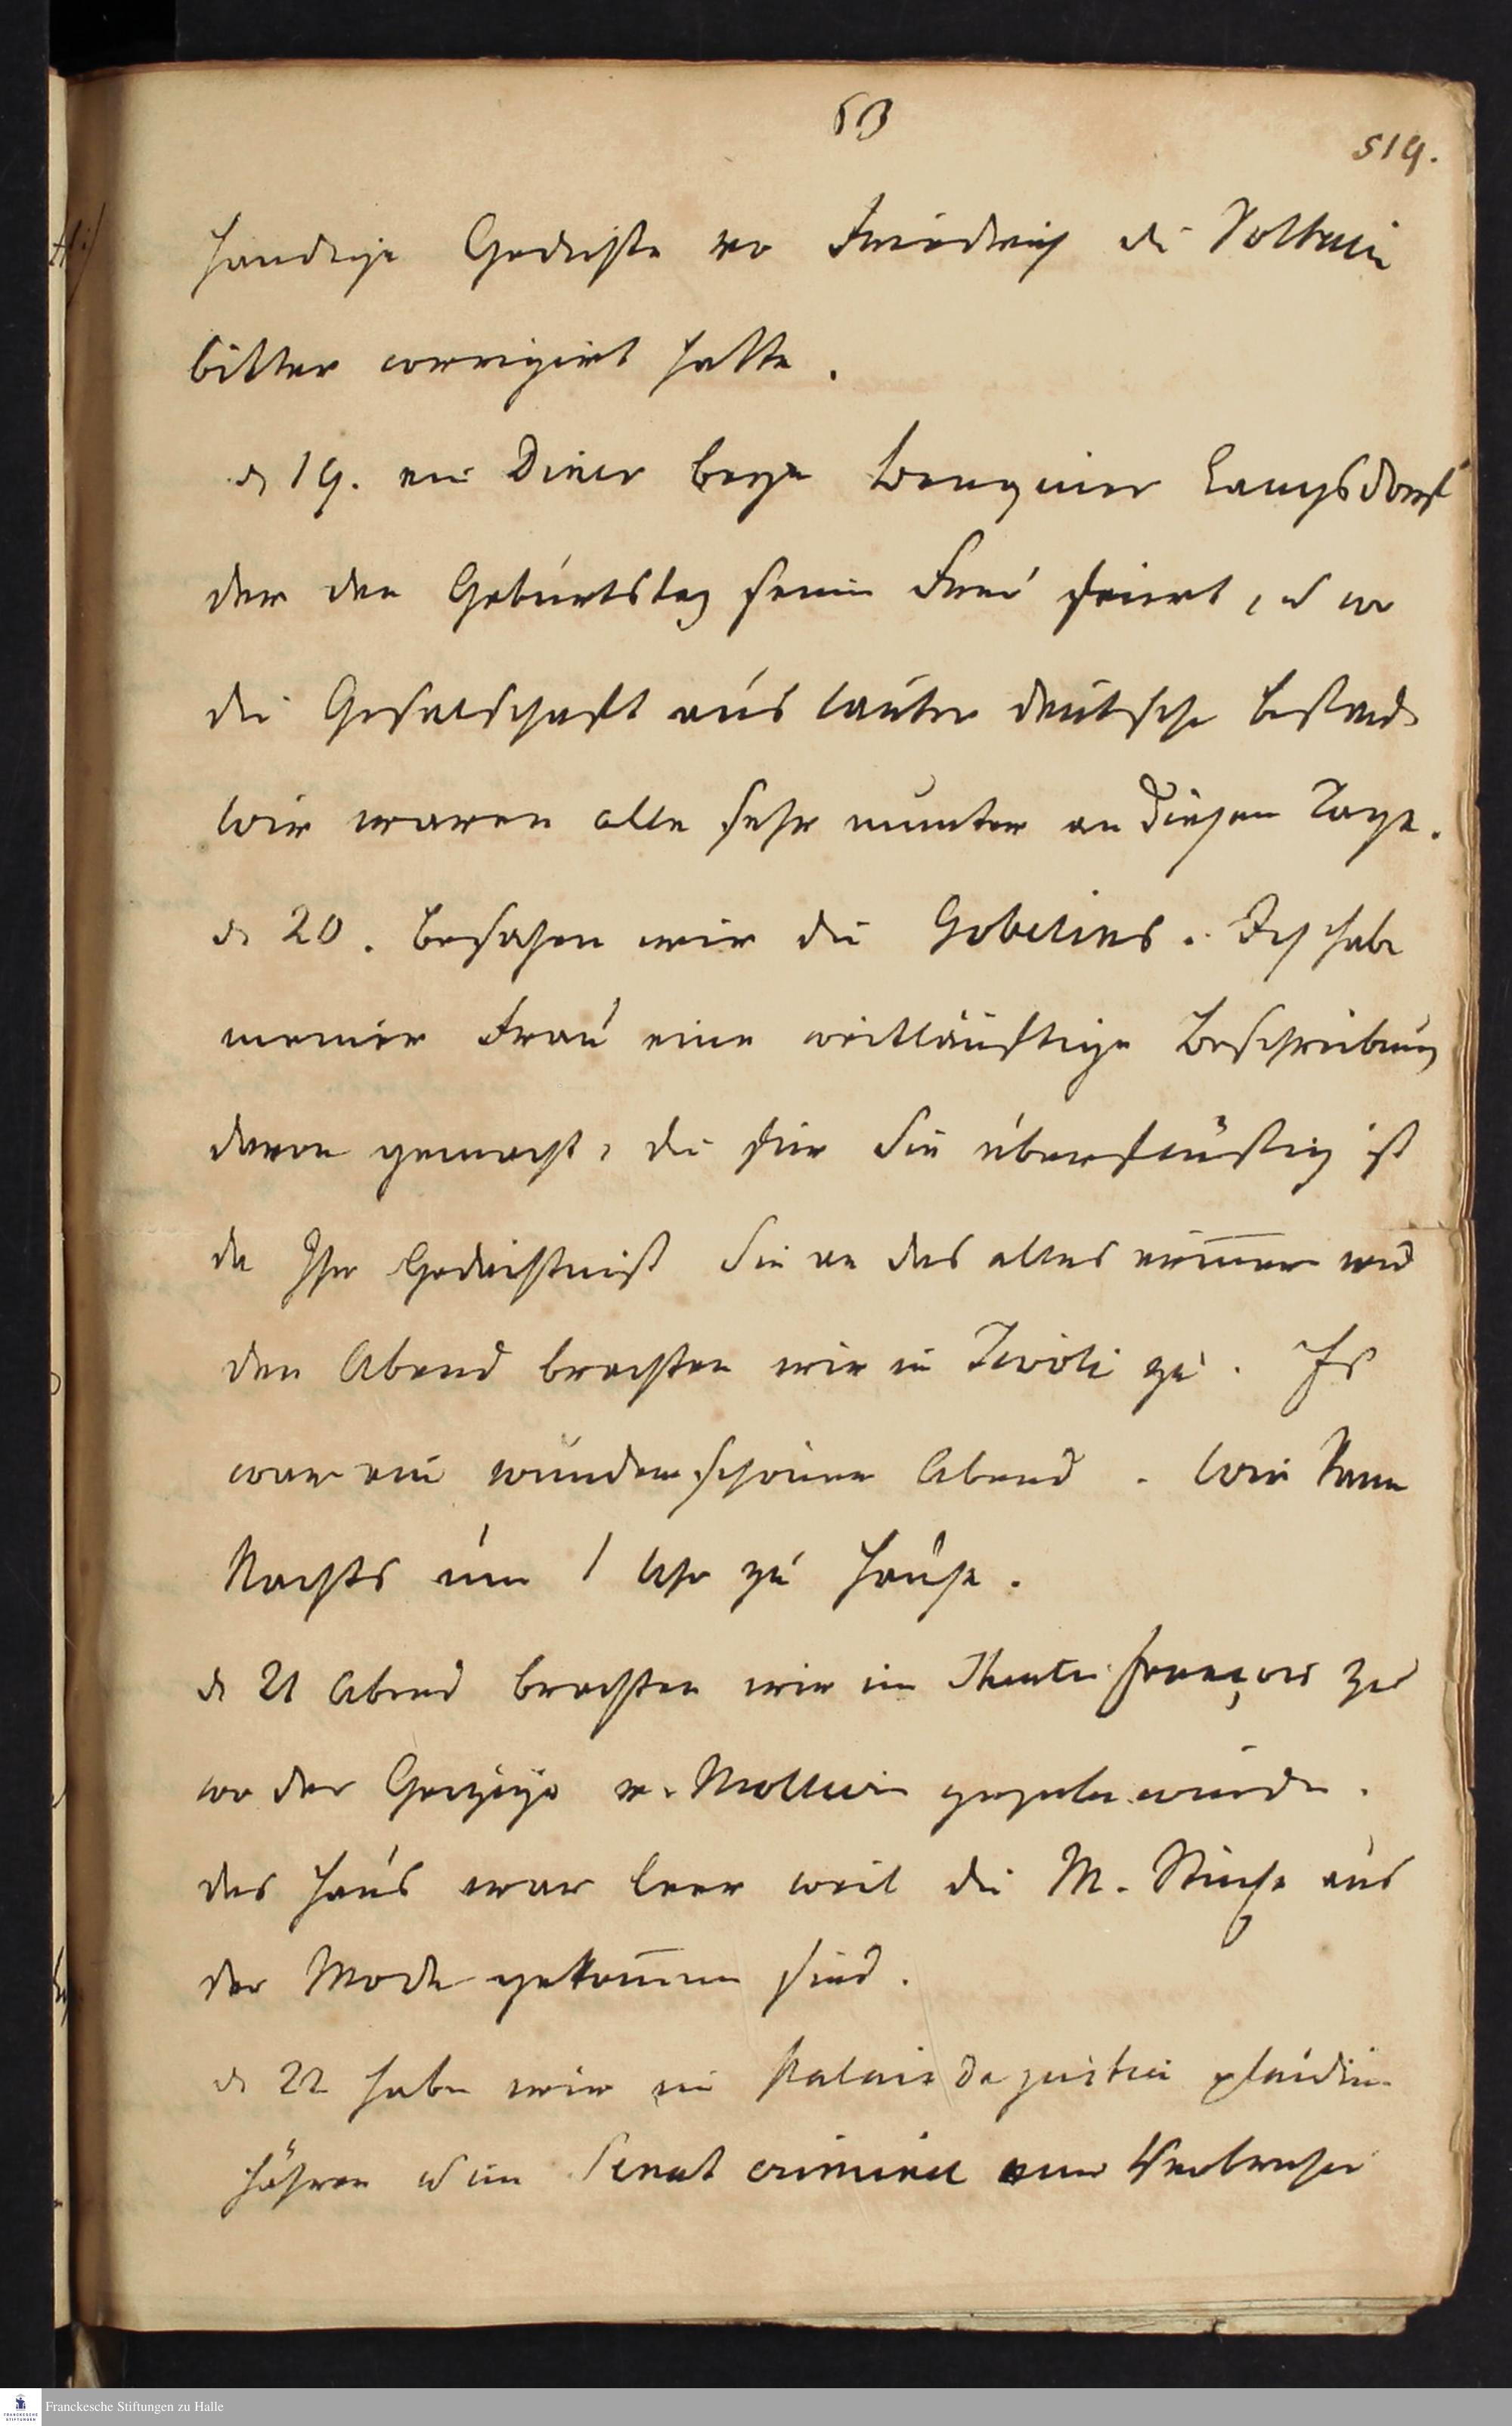 63
519.
händige Gedichte von Friedrich die Voltaire
bitter corrigirt hatte.
d 19. ein Diner beym Banquier Langsdorf
der den Geburtstag seiner Frau feiert, u wo
die Geselschaft aus lauter deutsche bestand
Wir waren alle sehr munter an diesem Tage.
d 20. besahen wir die Gobelins. Ich habe
meiner Frau eine weitläuftige Beschreibung
davon gemacht, die für Sie überflüssig ist
da Ihr Gedächtniß Sie an das alles erinnern wird
den Abend brachten wir in Tivoli zu. Es
war ein wunderschöner Abend. Wir kamen
Nachts um 1 Uhr zu Hause.
d 21 Abend brachten wir im Theater françois zu
wo der Geizige v. Mollier gegeben wurde.
das Haus war leer weil die M. Stücke aus
der Mode gekom̅en sind.
d 22 haben wir im Palais de justice plaidiren
hören u im Senat criminel einen Verbrecher
Franckesche Stiftungen zu Halle